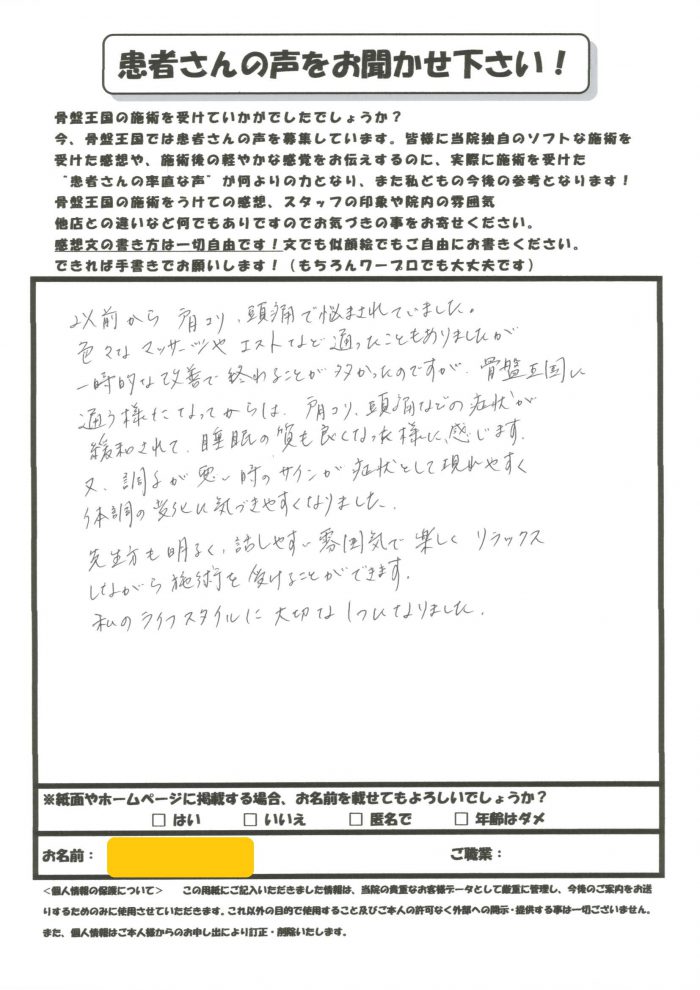 患者さんの声をお聞かせ下さい！
骨盤王国の施術を受けていかがでしたでしょうか？
今、骨盤王国では患者さんの声を募集しています。皆様に当院独自のソフトな施術を
受けた感想や、施術後の軽やかな感覚をお伝えするのに、実際に施術を受けた
“患者さんの率直な声”が何よりの力となり、また私どもの今後の参考となります！
骨盤王国の施術をうけての感想、スタッフの印象や院内の雰囲気
他店との違いなど何でもありですのでお気づきの事をお寄せください。
感想文の書き方は一切自由です！文でも似顔絵でもご自由にお書きください。
できれば手書きでお願いします！（もちろんワープロでも大丈夫です）
以前から 肩コリ、頭痛で悩まされていました。
色々なマッサージや エステなど通ったこともありましたが
一時的な改善で終わることが多かったのですが、骨盤王国に
通う様になってからは、肩コリ、頭痛などの症状が
緩和されて、睡眠の質も良くなった様に感じます。
又、調子が悪い時のサインが症状として現れやすく
体調の変化に気づきやすくなりました。
先生方も明るく、話しやすい雰囲気で楽しく リラックス
しながら施術を受けることができます。
私のライフスタイルに大切な1つになりました。
※紙面やホームページに掲載する場合、お名前を載せてもよろしいでしょうか？
□ はい □ いいえ □ 匿名で □ 年齢はダメ
お名前： ご職業：
＜個人情報の保護について＞ この用紙にご記入いただきました情報は、当院の貴重なお客様データとして厳重に管理し、今後のご案内をお送
りするためのみに使用させていただきます。これ以外の目的で使用すること及びご本人の許可なく外部への開示・提供する事は一切ございません。
また、個人情報はご本人様からのお申し出により訂正・削除いたします。